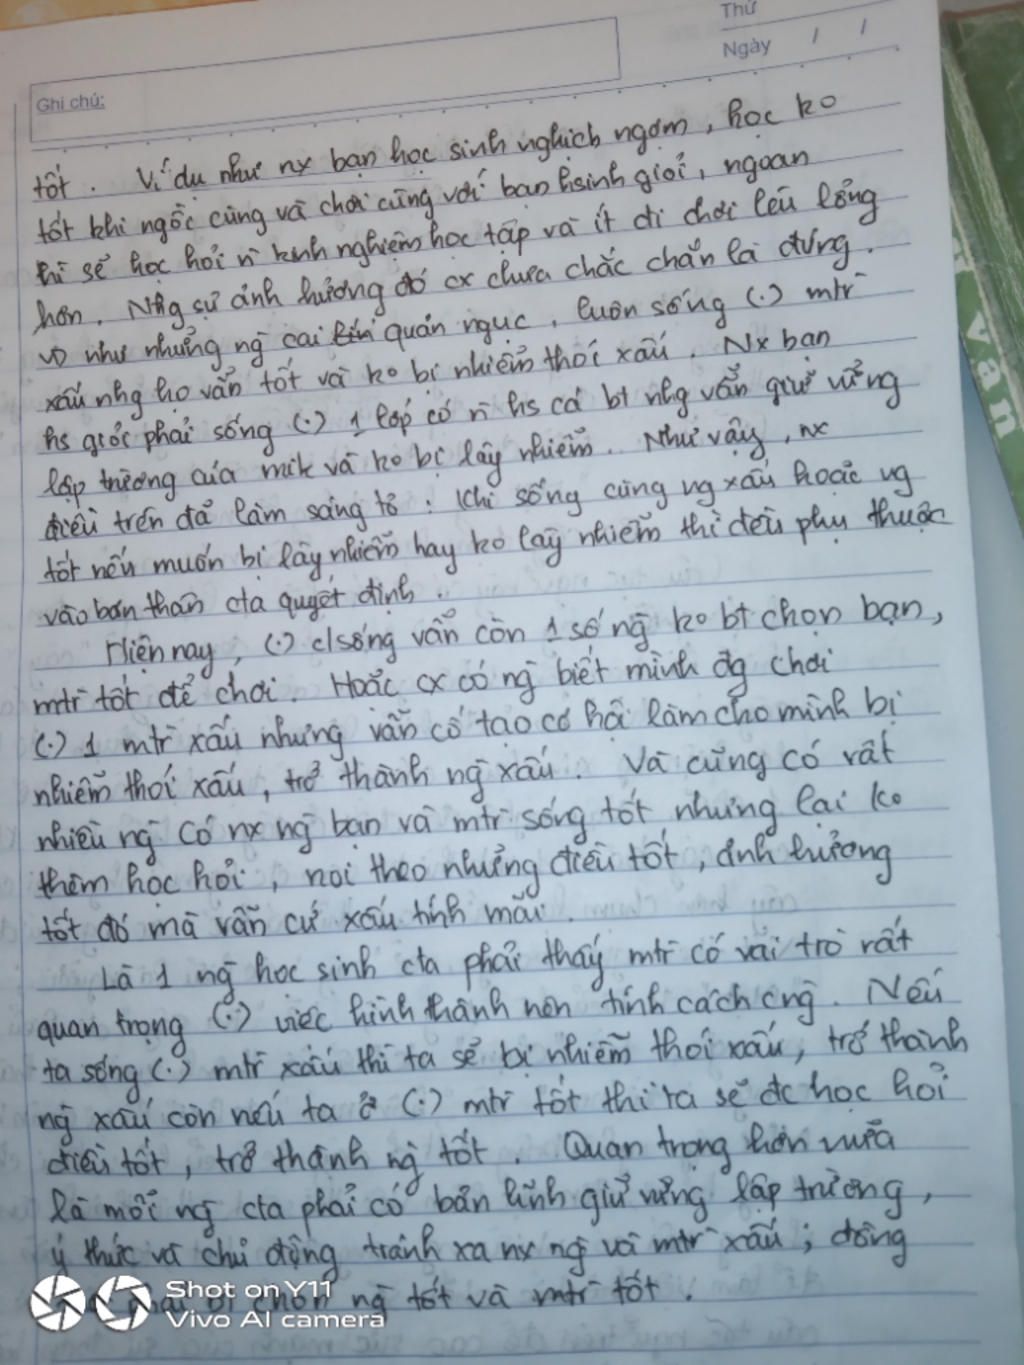 Thứ
Ngày / /
Ghi chú:
tốt. Ví dụ như nx bạn học sinh nghịch ngợm, học ko
tốt khi ngồi cùng và chơi cùng với bạn hsinh giỏi, ngoan
thì sẽ học hỏi n kinh nghiệm học tập và ít đi chơi lêu lổng
hơn. Nhg sự ảnh hưởng đó cx chưa chắc chắn là đứng.
VD như những ng cai quản ngục, luôn sống (.) mtr
xấu nhg họ vẫn tốt và ko bị nhiễm thói xấu. Nx bạn
hs giỏi phải sống (.) 1 lớp có n hs cá bt nhg vẫn giữ vững
lập trường của mik và ko bị lây nhiễm. Như vậy, nx
điều trên đã làm sáng tỏ: Khi sống cùng ng xấu hoặc ng
tốt nếu muốn bị lây nhiễm hay ko lây nhiễm thì đều phụ thuộc
vào bản thân cta quyết định.
Hiện nay, (.) c/sống vẫn còn 1 số ng ko bt chọn bạn,
mtr tốt để chơi. Hoặc cx có ng biết mình đg chơi
(.) 1 mtr xấu nhưng vẫn cố tạo cơ hội làm cho mình bị
nhiễm thói xấu, trở thành ng xấu. Và cũng có rất
nhiều ng có nx ng bạn và mtr sống tốt nhưng lại ko
thêm học hỏi, noi theo những điều tốt, ảnh hưởng
tốt đó mà vẫn cứ xấu tính mãi.
Là 1 ng học sinh cta phải thấy mtr có vai trò rất
quan trọng (.) việc hình thành nên tính cách cng. Nếu
ta sống (.) mtr xấu thì ta sẽ bị nhiễm thói xấu, trở thành
ng xấu còn nếu ta ở (.) mtr tốt thì ta sẽ đc học hỏi
điều tốt, trở thành ng tốt. Quan trọng hơn nữa
là mỗi ng cta phải có bản lĩnh giữ vững lập trường,
ý thức và chủ động tránh xa nx ng và mtr xấu; đồng
phải chọn ng tốt và mtr tốt.
Shot on Y11
Vivo AI camera
văn